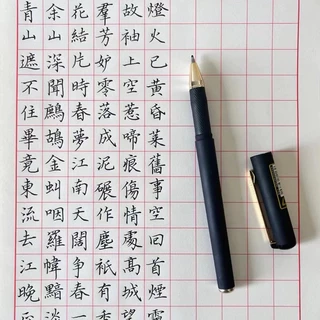 青山遮不住畢竟東流去江晚正
余山深聞鷓鴣金虯咽羅幃黯淡
花結片時春夢江南天闊爭春一
羣芳妒零落成泥碾作塵祇有香
故袖上空惹啼痕傷情處高城望
燈火已黃昏萊舊事空回首煙靄